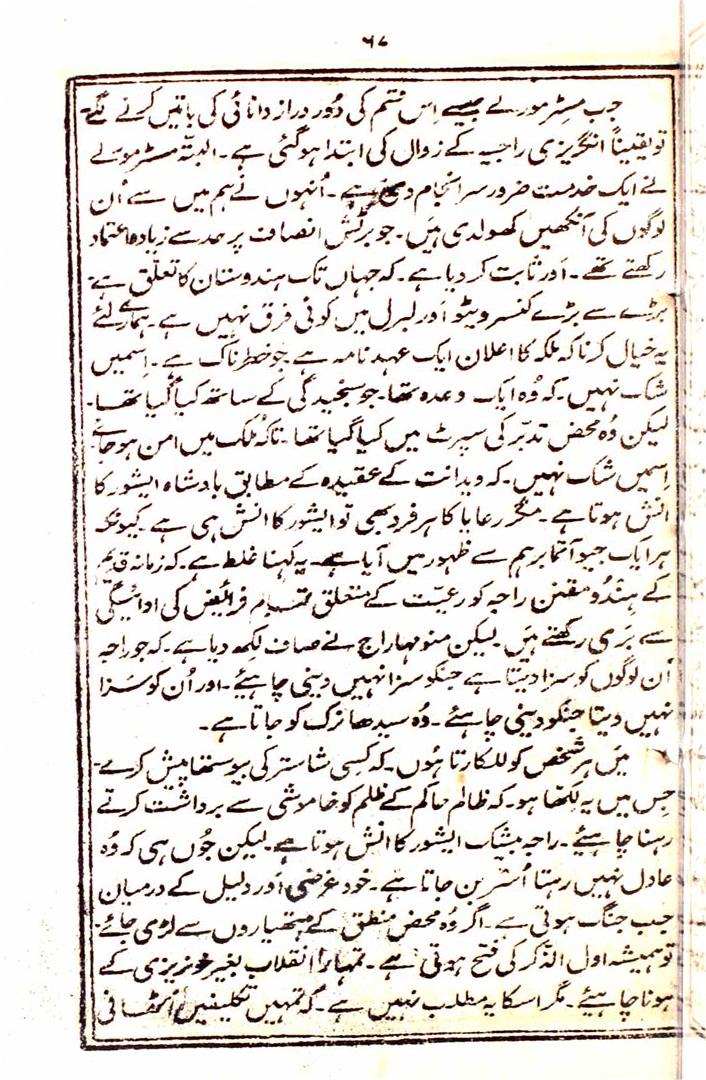 ۶۷
جب مسٹر مورلے جیسے اِس قسم کی دُور دراز دانائی کی باتیں کرنے لگے۔
تو یقیناً انگریزی راجیہ کے زوال کی ابتدا ہوگئی ہے۔ البتہ مسٹر مورلے
نے ایک خدمت ضرور سرانجام دی ہے۔ اُنہوں نے ہم میں سے اُن
لوگوں کی آنکھیں کھولدی ہیں۔ جو برٹش انصاف پر حد سے زیادہ اعتماد
رکھتے تھے۔ اَور ثابت کر دیا ہے۔ کہ جہاں تک ہندوستان کا تعلّق ہے
بڑے سے بڑے کنسرویٹو اَور لبرل میں کوئی فرق نہیں ہے۔ ہمارے لئے
یہ خیال کرنا کہ ملکہ کا اعلان ایک عہد نامہ ہے۔ جو خطرناک ہے۔ اِسمیں
شک نہیں۔ کہ وُہ ایک وعدہ تھا۔ جو سنجیدگی کے ساتھ کیا گیا تھا۔
لیکن وُہ محض تدبّر کی سپرٹ میں کیا گیا تھا۔ تاکہ مُلک میں امن ہو جائے
اِسمیں شک نہیں۔ کہ ویدانت کے عقیدہ کے مطابق بادشاہ ایشور کا
انش ہوتا ہے۔ مگر رعایا کا ہر فرد بھی تو ایشور کا انش ہی ہے۔ کیونکہ
ہر ایک جیو آتما برہم سے ظہور میں آیا ہے۔ یہ کہنا غلط ہے۔ کہ زمانہ قدیم
کے ہندُو مقنن راجہ کو رعیّت کے متعلق تمام فرائض کی ادائیگی
سے بَری رکھتے ہیں۔ لیکن منو مہاراج نے صاف لکھ دیا ہے۔ کہ جو راجہ
اُن لوگوں کو سزا دیتا ہے جنکو سزا نہیں دینی چاہیئے۔ اور اُن کو سَزا
نہیں دیتا جنکو دینی چاہئے۔ وُہ سیدھا نرک کو جاتا ہے۔
میں ہر شخص کو للکارتا ہُوں۔ کہ کسِی شاستر کی بیوستھا پیش کرے۔
جِس میں یہ لِکھا ہو۔ کہ ظالم حاکم کے ظلم کو خاموشی سے برداشت کرتے
رہنا چاہیئے۔ راجہ بیشک ایشور کا انش ہوتا ہے۔ لیکن جُوں ہی کہ وُہ
عادل نہیں رہتا اُسُر بن جاتا ہے۔ خود غرضی اَور دلیل کے درمیان
جب جنگ ہوتی ہے۔ اگر وُہ محض منطق کے ہتھیاروں سے لڑی جائے۔
تو ہمیشہ اول الذکر کی فتح ہوتی ہے۔ تمہارا اِنقلاب بغیر خونریزی کے
ہونا چاہیئے۔ مگر اسکا یہ مطلب نہیں ہے۔ کہ تمہیں تکلیفیں اُٹھانی